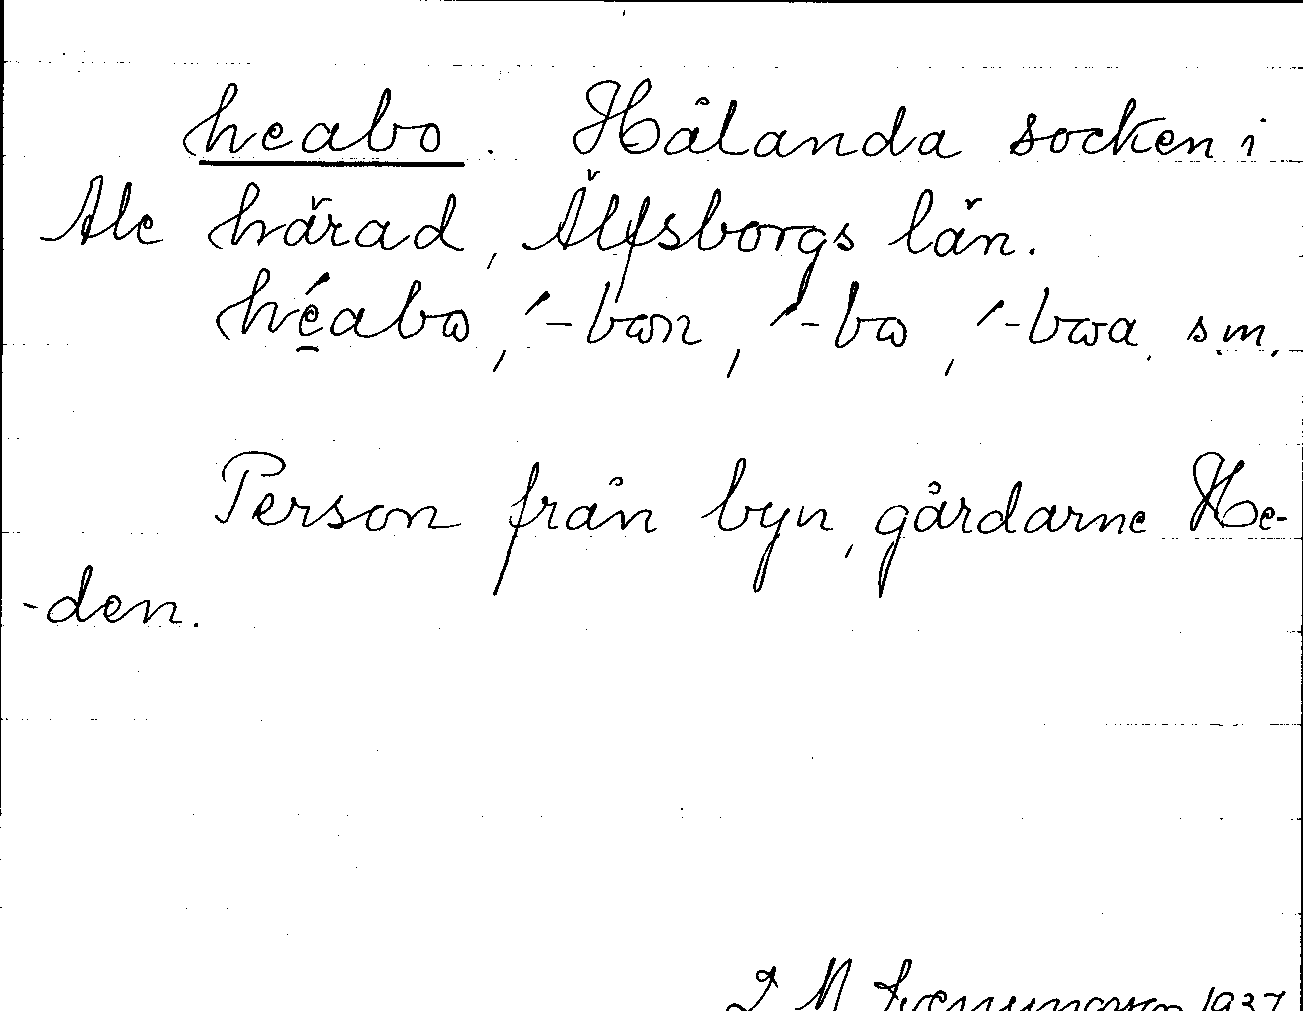 heabo. Hålanda socken i
Ale härad, Älfsborgs län.
héabω, ´-bωn, ´-bω, ´-bωa, s.m.
Person från byn, gårdarne He-
-den.
1937